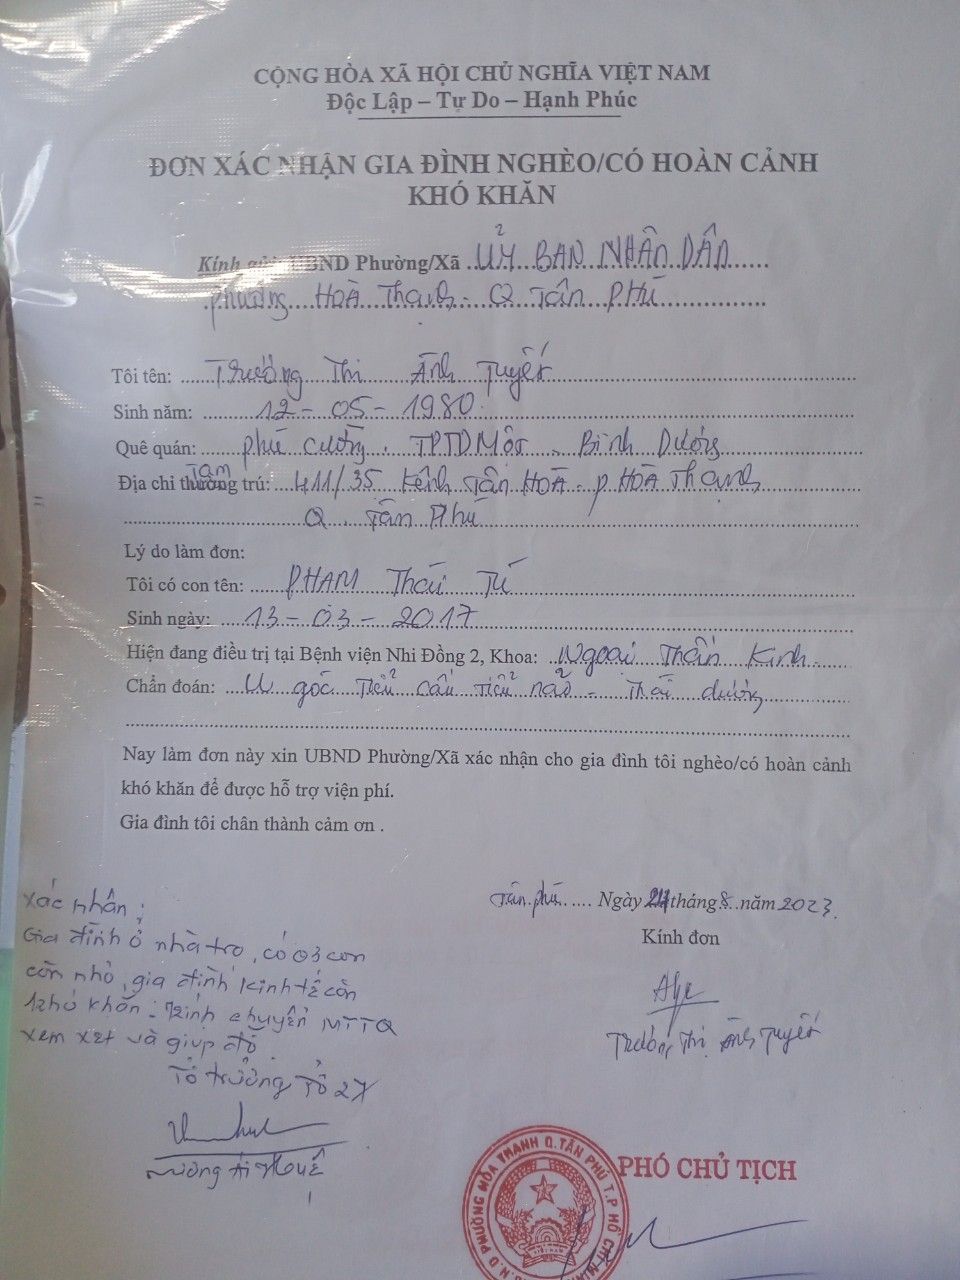 CỘNG HÒA XÃ HỘI CHỦ NGHĨA VIỆT NAM
Độc Lập – Tự Do – Hạnh Phúc
ĐƠN XÁC NHẬN GIA ĐÌNH NGHÈO/CÓ HOÀN CẢNH
KHÓ KHĂN
Kính gửi UBND Phường/Xã ỦY BAN NHÂN DÂN
Phường HOÀ Thạnh - Q Tân PHÚ
Tôi tên: Trương Thị Ánh Tuyết
Sinh năm: 12-05-1980
Quê quán: Phú Cường. TPTDMột. Bình Dương
Tạm
Địa chỉ thường trú: 411/35 Kênh Tân HOÀ - P HOÀ Thạnh
Q. Tân Phú
Lý do làm đơn:
Tôi có con tên: PHẠM Thái Tú
Sinh ngày: 13-03-2017
Hiện đang điều trị tại Bệnh viện Nhi Đồng 2, Khoa: Ngoại Thần Kinh
Chẩn đoán: U góc Tiểu cầu Tiểu não - Thái dương
Nay làm đơn này xin UBND Phường/Xã xác nhận cho gia đình tôi nghèo/có hoàn cảnh
khó khăn để được hỗ trợ viện phí.
Gia đình tôi chân thành cảm ơn .
Tân phú Ngày 24 tháng 8 năm 2023
Kính đơn
Trương Thị Ánh Tuyết
Xác nhận:
Gia đình ở nhà trọ, có 03 con
còn nhỏ, gia đình kinh tế còn
khó khăn. Kính chuyển MTTQ
xem xét và giúp đỡ.
Tổ trưởng Tổ 27
Ái Huế
PHÓ CHỦ TỊCH
U.B.N.D PHƯỜNG HÒA THẠNH Q.TÂN PHÚ T.P HỒ CHÍ MINH
VIỆT NAM